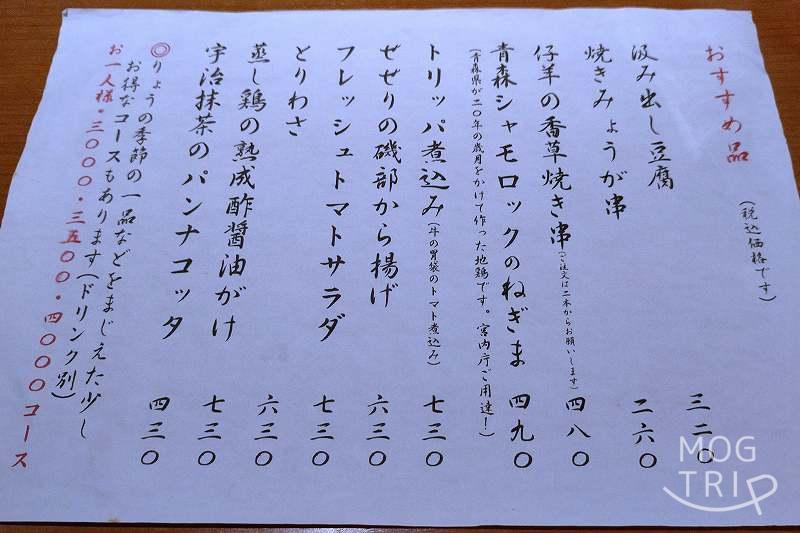 おすすめ品
(税込価格です)
汲み出し豆腐 三二〇
焼きみょうが串 二六〇
仔羊の香草焼き串(ご注文は二本からお願いします) 四八〇
青森シャモロックのねぎま 四九〇
(青森県が二〇年の歳月をかけて作った地鶏です。宮内庁ご用達!)
トリッパ煮込み(牛の胃袋のトマト煮込み) 七三〇
せせりの磯部から揚げ 六三〇
フレッシュトマトサラダ 七三〇
とりわさ 六三〇
蒸し鶏の熟成酢醤油がけ 七三〇
宇治抹茶のパンナコッタ 四三〇
◎りょうの季節の一品などをまじえた少し
お得なコースもあります(ドリンク別)
お一人様・三〇〇〇・三五〇〇・四〇〇〇コース
MOG
TRIP